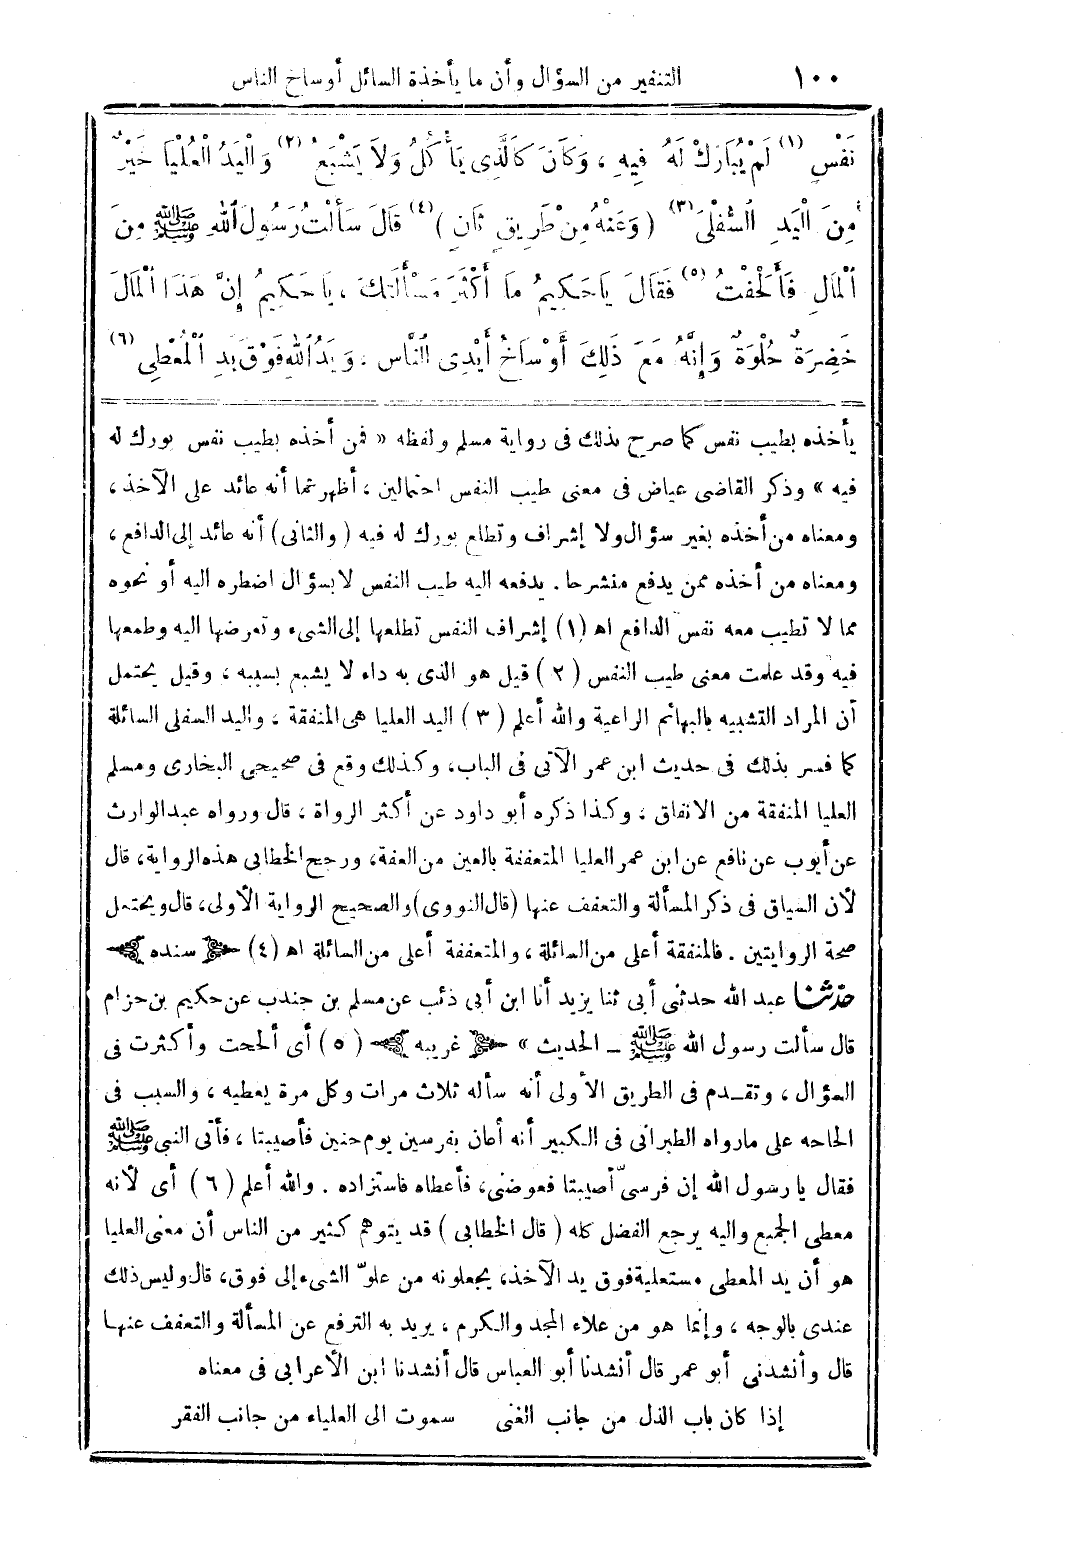 ١٠٠ التنفير من السؤال وأن ما يأخذة السائل أوساخ الناس
نَفْسٍ (١) لَمْ يُبَارَكْ لَهُ فِيهِ ، وَكَانَ كَالَّذِى يَأْكُلُ وَلاَ يَشْبَعُ (٢) وَالْيَدُ الْعُلْيَا خَيْرٌ
مِنَ الْيَدِ السُّفْلَى (٣) ( وَعَنْهُ مِنْ طَرِيقٍ ثَانٍ ) (٤) قَالَ سَأَلْتُ رَسُولَ اللهِ ﷺ مِنَ
الْمَالِ فَأَلْحَفْتُ (٥) فَقَالَ يَا حَكِيمُ مَا أَكْثَرَ مَسْأَلَتِكَ ، يَا حَكِيمُ إِنَّ هَذَا الْمَالَ
خَضِرَةٌ حُلْوَةٌ وَإِنَّهُ مَعَ ذَلِكَ أَوْسَاخُ أَيْدِى النَّاسِ ، وَيَدُ اللهِ فَوْقَ يَدِ الْمُعْطِى (٦)
يأخذه بطيب نفس كما صرح بذلك فى رواية مسلم ولفظه « فمن أخذه بطيب نفس بورك له
فيه » وذكر القاضى عياض فى معنى طيب النفس احتمالين ، أظهرهما أنه عائد على الآخذ ،
ومعناه من أخذه بغير سؤال ولا إشراف وتطلع بورك له فيه ( والثانى ) أنه عائد إلى الدافع ،
ومعناه من أخذه ممن يدفع منشرحا . يدفعه اليه طيب النفس لا بسؤال اضطره اليه أو نحوه
مما لا تطيب معه نفس الدافع اه (١) إشراف النفس تطلعها إلى الشىء وتعرضها اليه وطمعها
فيه وقد علمت معنى طيب النفس ( ٢ ) قيل هو الذى به داء لا يشبع بسببه ، وقيل يحتمل
أن المراد التشبيه بالبهائم الراعية والله أعلم ( ٣ ) اليد العليا هى المنفقة ، واليد السفلى السائلة
كما فسر بذلك فى حديث ابن عمر الآتى فى الباب، وكذلك وقع فى صحيحى البخارى ومسلم
العليا المنفقة من الانفاق ، وكذا ذكره أبو داود عن أكثر الرواة ، قال ورواه عبد الوارث
عن أيوب عن نافع عن ابن عمر العليا المتعففة بالعين من العفة، ورجح الخطابى هذه الرواية، قال
لأن السياق فى ذكر المسألة والتعفف عنها (قال النووى) والصحيح الرواية الأولى، قال ويحتمل
صحة الروايتين . فالمنفقة أعلى من السائلة ، والمتعففة أعلى من السائلة اه (٤) سنده
حدثنا عبد الله حدثنى أبى ثنا يزيد أنا ابن أبى ذئب عن مسلم بن جندب عن حكيم بن حزام
قال سألت رسول الله ﷺ ـ الحديث » غريبه ( ٥ ) أى ألححت وأكثرت فى
السؤال ، وتقـدم فى الطريق الأولى أنه سأله ثلاث مرات وكل مرة يعطيه ، والسبب فى
الحاحه على ما رواه الطبرانى فى الكبير أنه أعان بفرسين يوم حنين فأصيبتا ، فأتى النبى ﷺ
فقال يا رسول الله إن فرسىّ أصيبتا فعوضنى، فأعطاه فاستزاده . والله أعلم ( ٦ ) أى لأنه
معطى الجميع واليه يرجع الفضل كله ( قال الخطابى ) قد يتوهم كثير من الناس أن معنى العليا
هو أن يد المعطى مستعلية فوق يد الآخذ، يجعلونه من علوّ الشىء إلى فوق، قال وليس ذلك
عندى بالوجه ، وإنما هو من علاء المجد والكرم ، يريد به الترفع عن المسألة والتعفف عنها
قال وأنشدنى أبو عمر قال أنشدنا أبو العباس قال أنشدنا ابن الأعرابى فى معناه
إذا كان باب الذل من جانب الغنى سموت الى العلياء من جانب الفقر